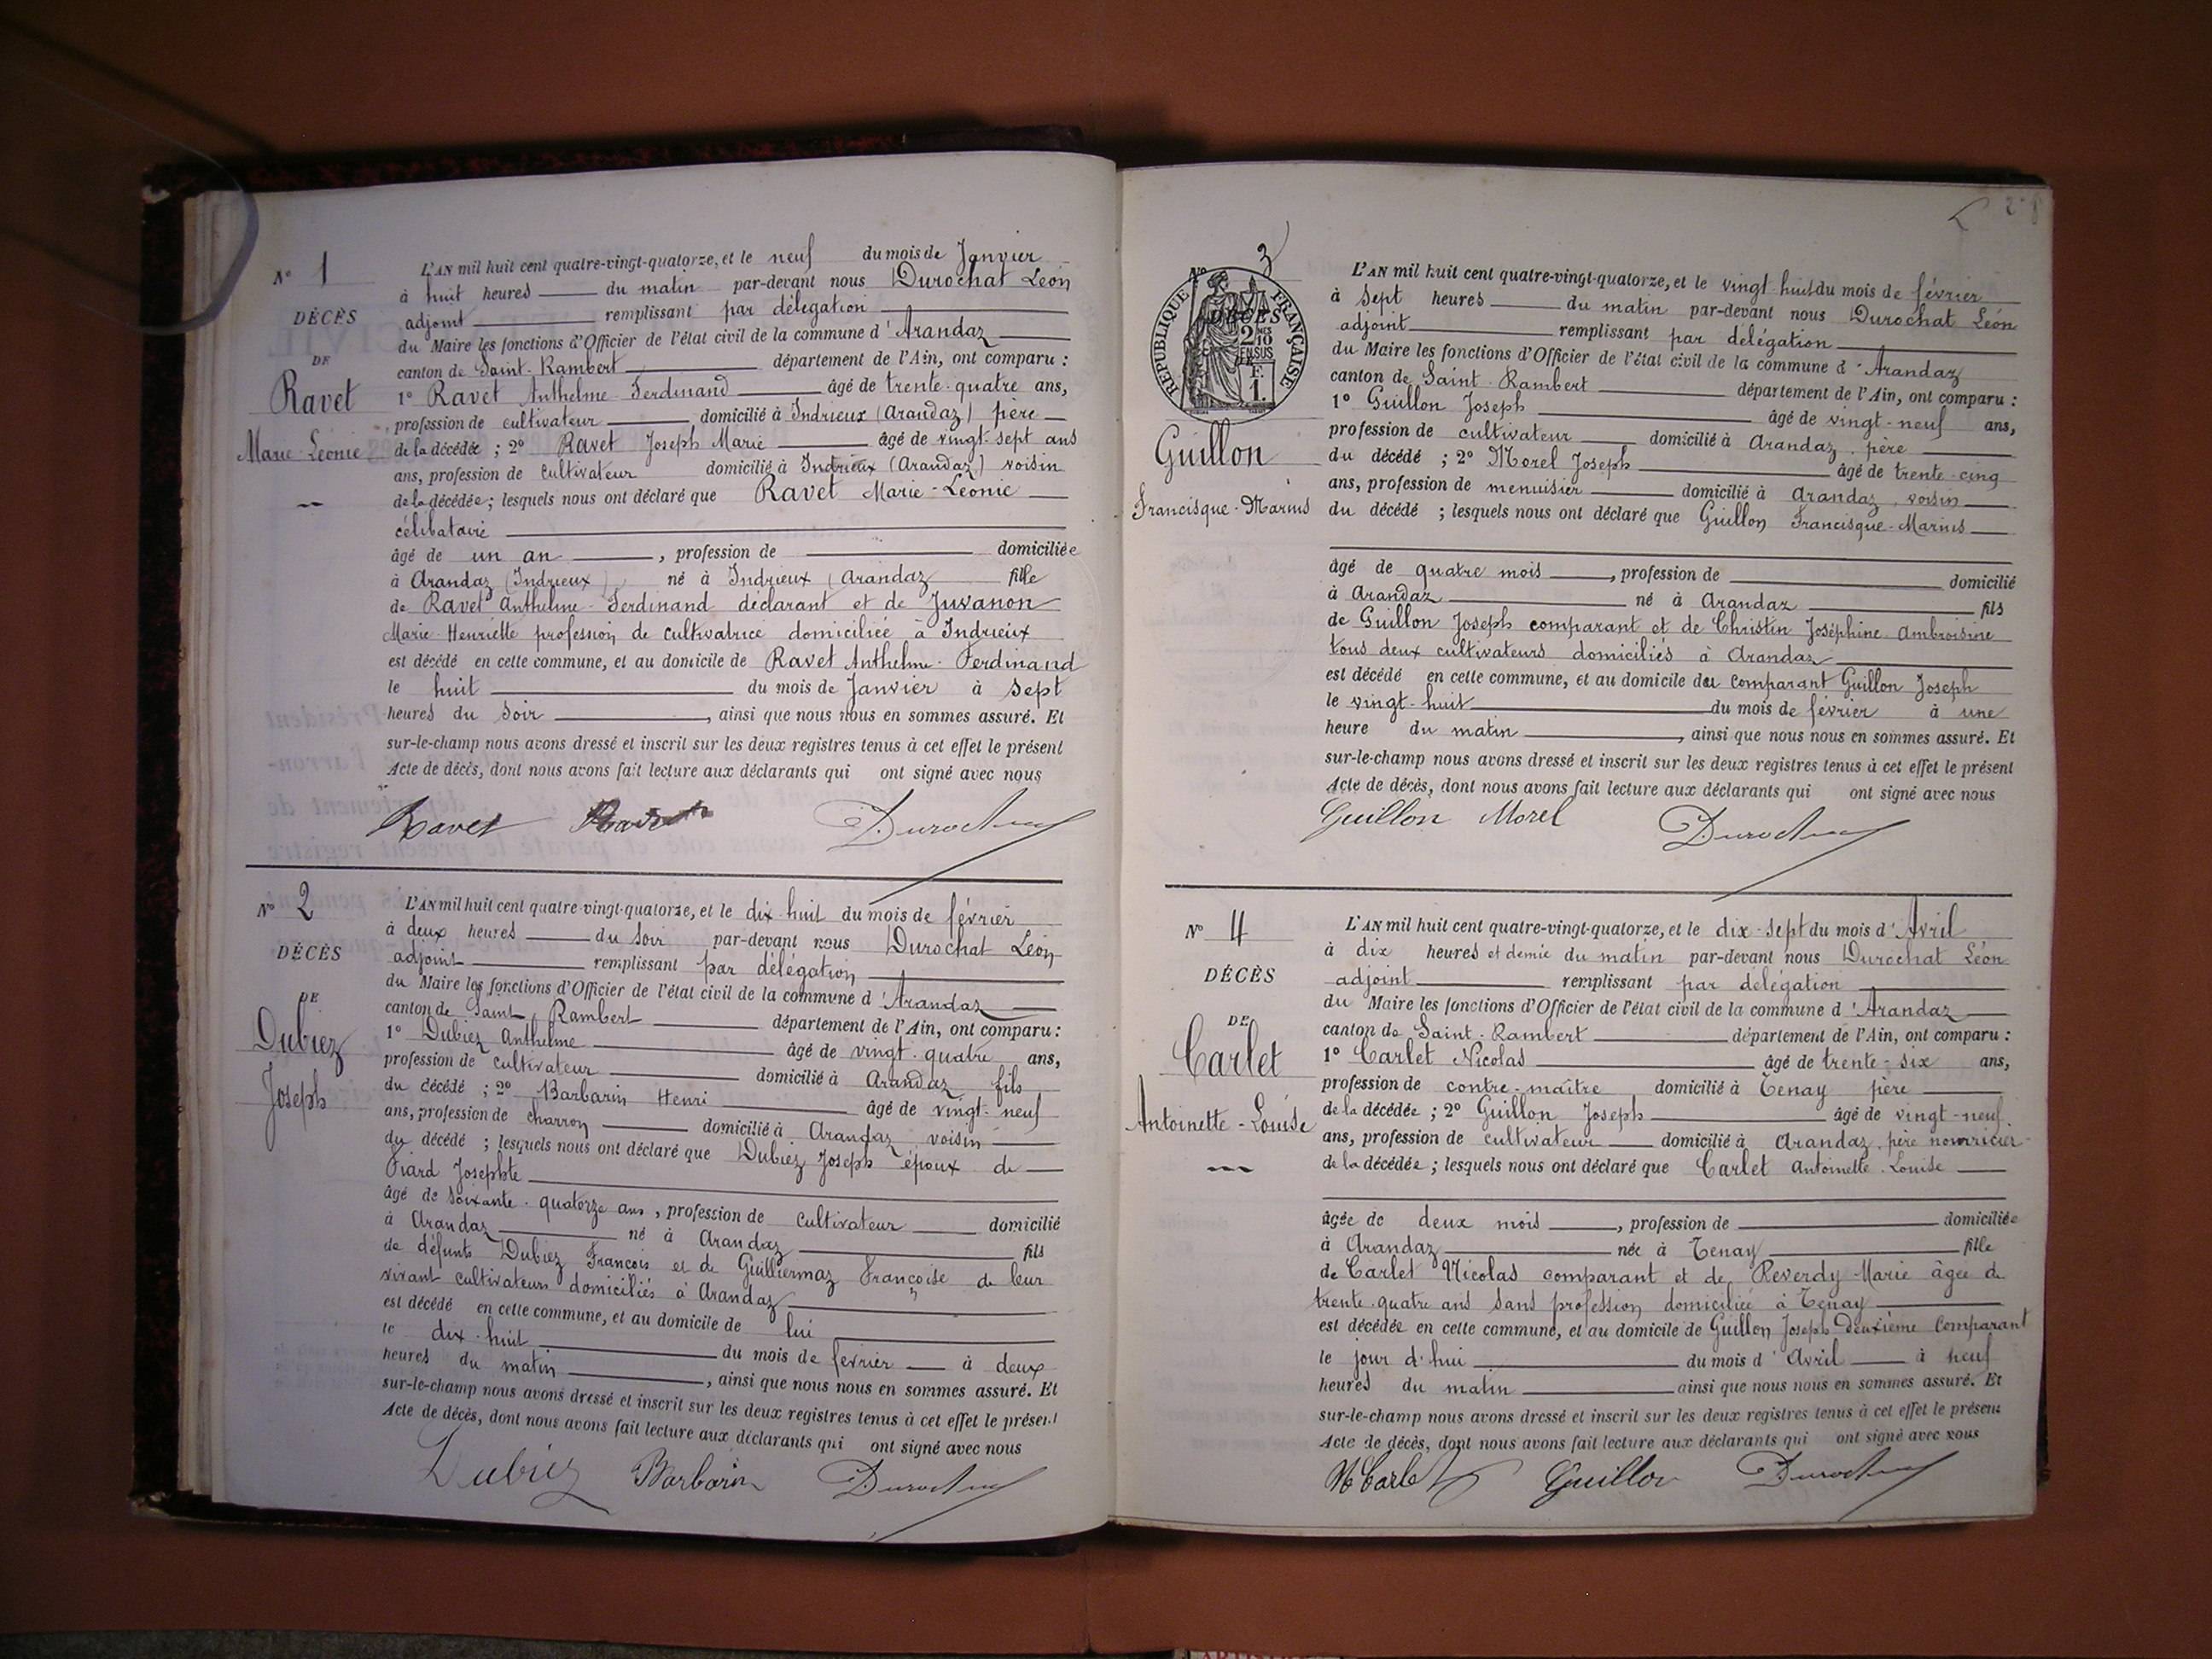 Nº 1
DÉCÈS
DE
Ravet
Marie-Léonie
L'AN mil huit cent quatre-vingt-quatorze, et le neuf du mois de Janvier
à huit heures du matin par-devant nous Durochat Léon
adjoint remplissant par délégation
du Maire les fonctions d'Officier de l'état civil de la commune d'Arandaz
canton de Saint-Rambert département de l'Ain, ont comparu :
1º Ravet Anthelme-Ferdinand âgé de trente-quatre ans,
profession de cultivateur domicilié à Indrieux (Arandaz) père
de la décédée ; 2º Ravet Joseph Marie âgé de vingt-sept ans
ans, profession de cultivateur domicilié à Indrieux (Arandaz) voisin
de la décédée ; lesquels nous ont déclaré que Ravet Marie-Léonie
célibataire
âgé de un an, profession de domiciliée
à Arandaz (Indrieux) né à Indrieux (Arandaz fille
de Ravet Anthelme-Ferdinand déclarant et de Juvanon
Marie-Henriette profession de cultivatrice domiciliée à Indrieux
est décédé en cette commune, et au domicile de Ravet Anthelme-Ferdinand
le huit du mois de Janvier à sept
heures du soir, ainsi que nous nous en sommes assuré. Et
sur-le-champ nous avons dressé et inscrit sur les deux registres tenus à cet effet le présent
Acte de décès, dont nous avons fait lecture aux déclarants qui ont signé avec nous
Ravet Ravet Durochat
Nº 2
DÉCÈS
DE
Dubiez
Joseph
L'AN mil huit cent quatre-vingt-quatorze, et le dix-huit du mois de février
à deux heures du soir par-devant nous Durochat Léon
adjoint remplissant par délégation
du Maire les fonctions d'Officier de l'état civil de la commune d'Arandaz
canton de Saint Rambert département de l'Ain, ont comparu :
1º Dubiez Anthelme âgé de vingt-quatre ans,
profession de cultivateur domicilié à Arandaz fils
du décédé ; 2º Barbarin Henri âgé de vingt-neuf
ans, profession de charron domicilié à Arandaz voisin
du décédé ; lesquels nous ont déclaré que Dubiez Joseph époux de
Piard Josephte
âgé de soixante-quatorze ans, profession de cultivateur domicilié
à Arandaz né à Arandaz fils
de défunts Dubiez François et de Guilliermaz Françoise de leur
vivant cultivateurs domiciliés à Arandaz
est décédé en cette commune, et au domicile de lui
le dix-huit du mois de février à deux
heures du matin, ainsi que nous nous en sommes assuré. Et
sur-le-champ nous avons dressé et inscrit sur les deux registres tenus à cet effet le présent
Acte de décès, dont nous avons fait lecture aux déclarants qui ont signé avec nous
Dubiez Barbarin Durochat
Nº 3
RÉPUBLIQUE FRANÇAISE
DÉCÈS
2/10 EN SUS
F. 1.
Guillon
Francisque-Marius
L'AN mil huit cent quatre-vingt-quatorze, et le vingt-huit du mois de février
à sept heures du matin par-devant nous Durochat Léon
adjoint remplissant par délégation
du Maire les fonctions d'Officier de l'état civil de la commune d'Arandaz
canton de Saint-Rambert département de l'Ain, ont comparu :
1º Guillon Joseph âgé de vingt-neuf ans,
profession de cultivateur domicilié à Arandaz, père
du décédé ; 2º Morel Joseph âgé de trente-cinq
ans, profession de menuisier domicilié à Arandaz, voisin
du décédé ; lesquels nous ont déclaré que Guillon Francisque-Marius
âgé de quatre mois, profession de domicilié
à Arandaz né à Arandaz fils
de Guillon Joseph comparant et de Christin Joséphine-Ambroisine
tous deux cultivateurs domiciliés à Arandaz
est décédé en cette commune, et au domicile du comparant Guillon Joseph
le vingt-huit du mois de février à une
heure du matin, ainsi que nous nous en sommes assuré. Et
sur-le-champ nous avons dressé et inscrit sur les deux registres tenus à cet effet le présent
Acte de décès, dont nous avons fait lecture aux déclarants qui ont signé avec nous
Guillon Morel Durochat
Nº 4
DÉCÈS
DE
Carlet
Antoinette-Louise
L'AN mil huit cent quatre-vingt-quatorze, et le dix-sept du mois d'Avril
à dix heures et demie du matin par-devant nous Durochat Léon
adjoint remplissant par délégation
du Maire les fonctions d'Officier de l'état civil de la commune d'Arandaz
canton de Saint-Rambert département de l'Ain, ont comparu :
1º Carlet Nicolas âgé de trente-six ans,
profession de contre-maître domicilié à Tenay père
de la décédée ; 2º Guillon Joseph âgé de vingt-neuf
ans, profession de cultivateur domicilié à Arandaz, père nourricier
de la décédée ; lesquels nous ont déclaré que Carlet Antoinette-Louise
âgée de deux mois, profession de domiciliée
à Arandaz née à Tenay fille
de Carlet Nicolas comparant et de Reverdy Marie âgée de
trente-quatre ans sans profession domiciliée à Tenay
est décédée en cette commune, et au domicile de Guillon Joseph deuxième comparant
le jour d'hui du mois d'Avril à neuf
heures du matin ainsi que nous nous en sommes assuré. Et
sur-le-champ nous avons dressé et inscrit sur les deux registres tenus à cet effet le présent
Acte de décès, dont nous avons fait lecture aux déclarants qui ont signé avec nous
N Carlet Guillon Durochat